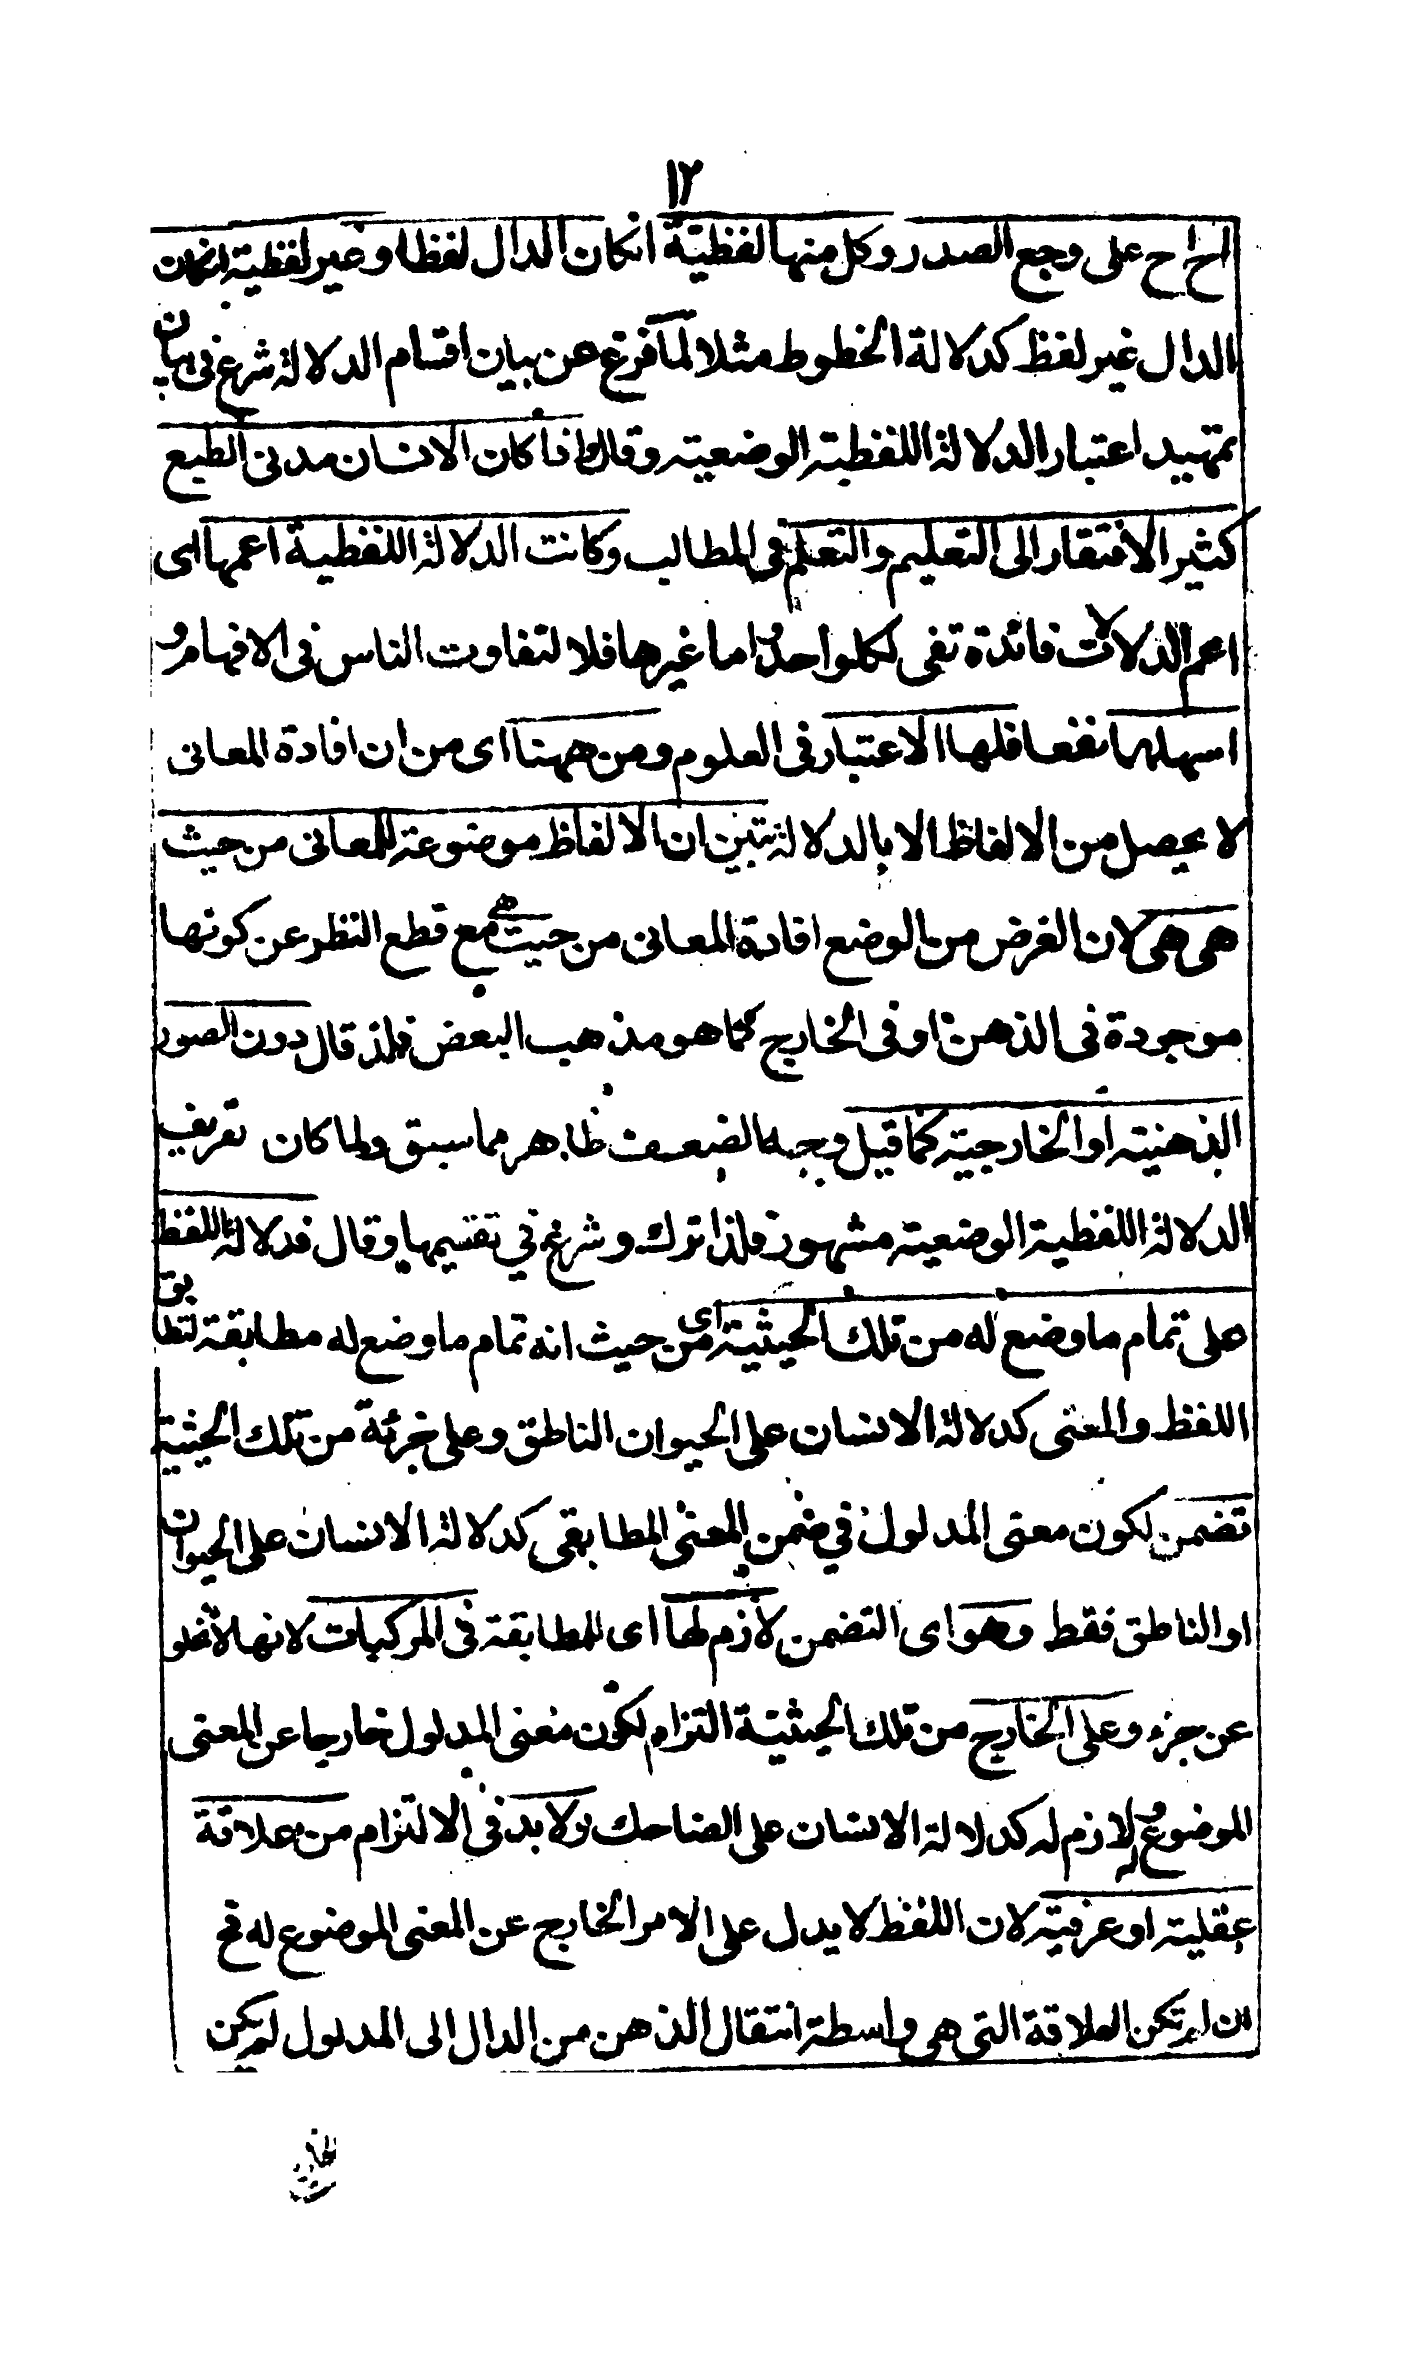 ١٢
اح اح على وجع الصدر وكل منها لفظية انكان الدال لفظا وغير لفظية انكان
الدال غير لفظ كدلالة الخطوط مثلا لما فرغ عن بيان اقسام الدلالة شرع في بيان
تمهيد اعتبار الدلالة اللفظية الوضعية وقال واذا كان الانسان مدنى الطبع
كثير الافتقار الى التعليم والتعلم في المطالب وكانت الدلالة اللفظية اعمها اى
اعم الدلالات فائدة تفى لكل واحد واما غيرها فلا لتفاوت الناس في الافهام و
اسهلها نفعا فلها الاعتبار فى العلوم ومن ههنا اى من ان افادة المعانى
لا يحصل من الالفاظ الا بالدلالة يتبين ان الالفاظ موضوعة للمعانى من حيث
هى هى لان الغرض من الوضع افادة المعانى من حيث هى مع قطع النظر عن كونها
موجودة فى الذهن او فى الخارج كما هو مذهب البعض فلذ قال دون الصور
الذهنية او الخارجية كما قيل وجه الضعف ظاهر مما سبق ولما كان تعريف
الدلالة اللفظية الوضعية مشهور فلذا ترك وشرع في تقسيمها وقال فدلالة اللفظ
على تمام ما وضع له من تلك الحيثية اى من حيث انه تمام ما وضع له مطابقة لتطابق
اللفظ والمعنى كدلالة الانسان على الحيوان الناطق وعلى جزئه من تلك الحيثية
تضمن لكون معنى المدلول في ضمن المعنى المطابقى كدلالة الانسان على الحيوان
او الناطق فقط وهو اى التضمن لازم لها اى للمطابقة فى المركبات لانها لا تخلو
عن جزء وعلى الخارج من تلك الحيثية التزام لكون معنى المدلول خارجا عن المعنى
الموضوع له ولازم له كدلالة الانسان على الضاحك ولا بد فى الالتزام من علاقة
عقلية او عرفية لان اللفظ لا يدل على الامر الخارج عن المعنى الموضوع له فح
ان لم تكن العلاقة التى هى واسطة انتقال الذهن من الدال الى المدلول لم يكن